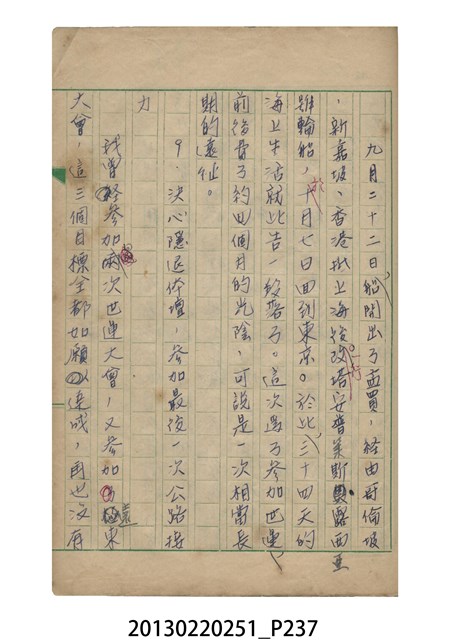 九月二十二日，船開出了孟買，經由哥倫坡
，新嘉坡、香港抵上海後改搭安普萊斯露西亞
雖輪船，於十月七日回到東京。於此，三十四天的
海上生活就此告一段落了。這次為了參加世運，
前後費了約四個月的光陰，可說是一次相當長
期的遠征。
9．決心隱退体壇，參加最後一次公路接
力
我曾經參加兩次世運大會，又參加遠東
大會，這三個目標全都如願以達成，再也沒有
20130220251_P237